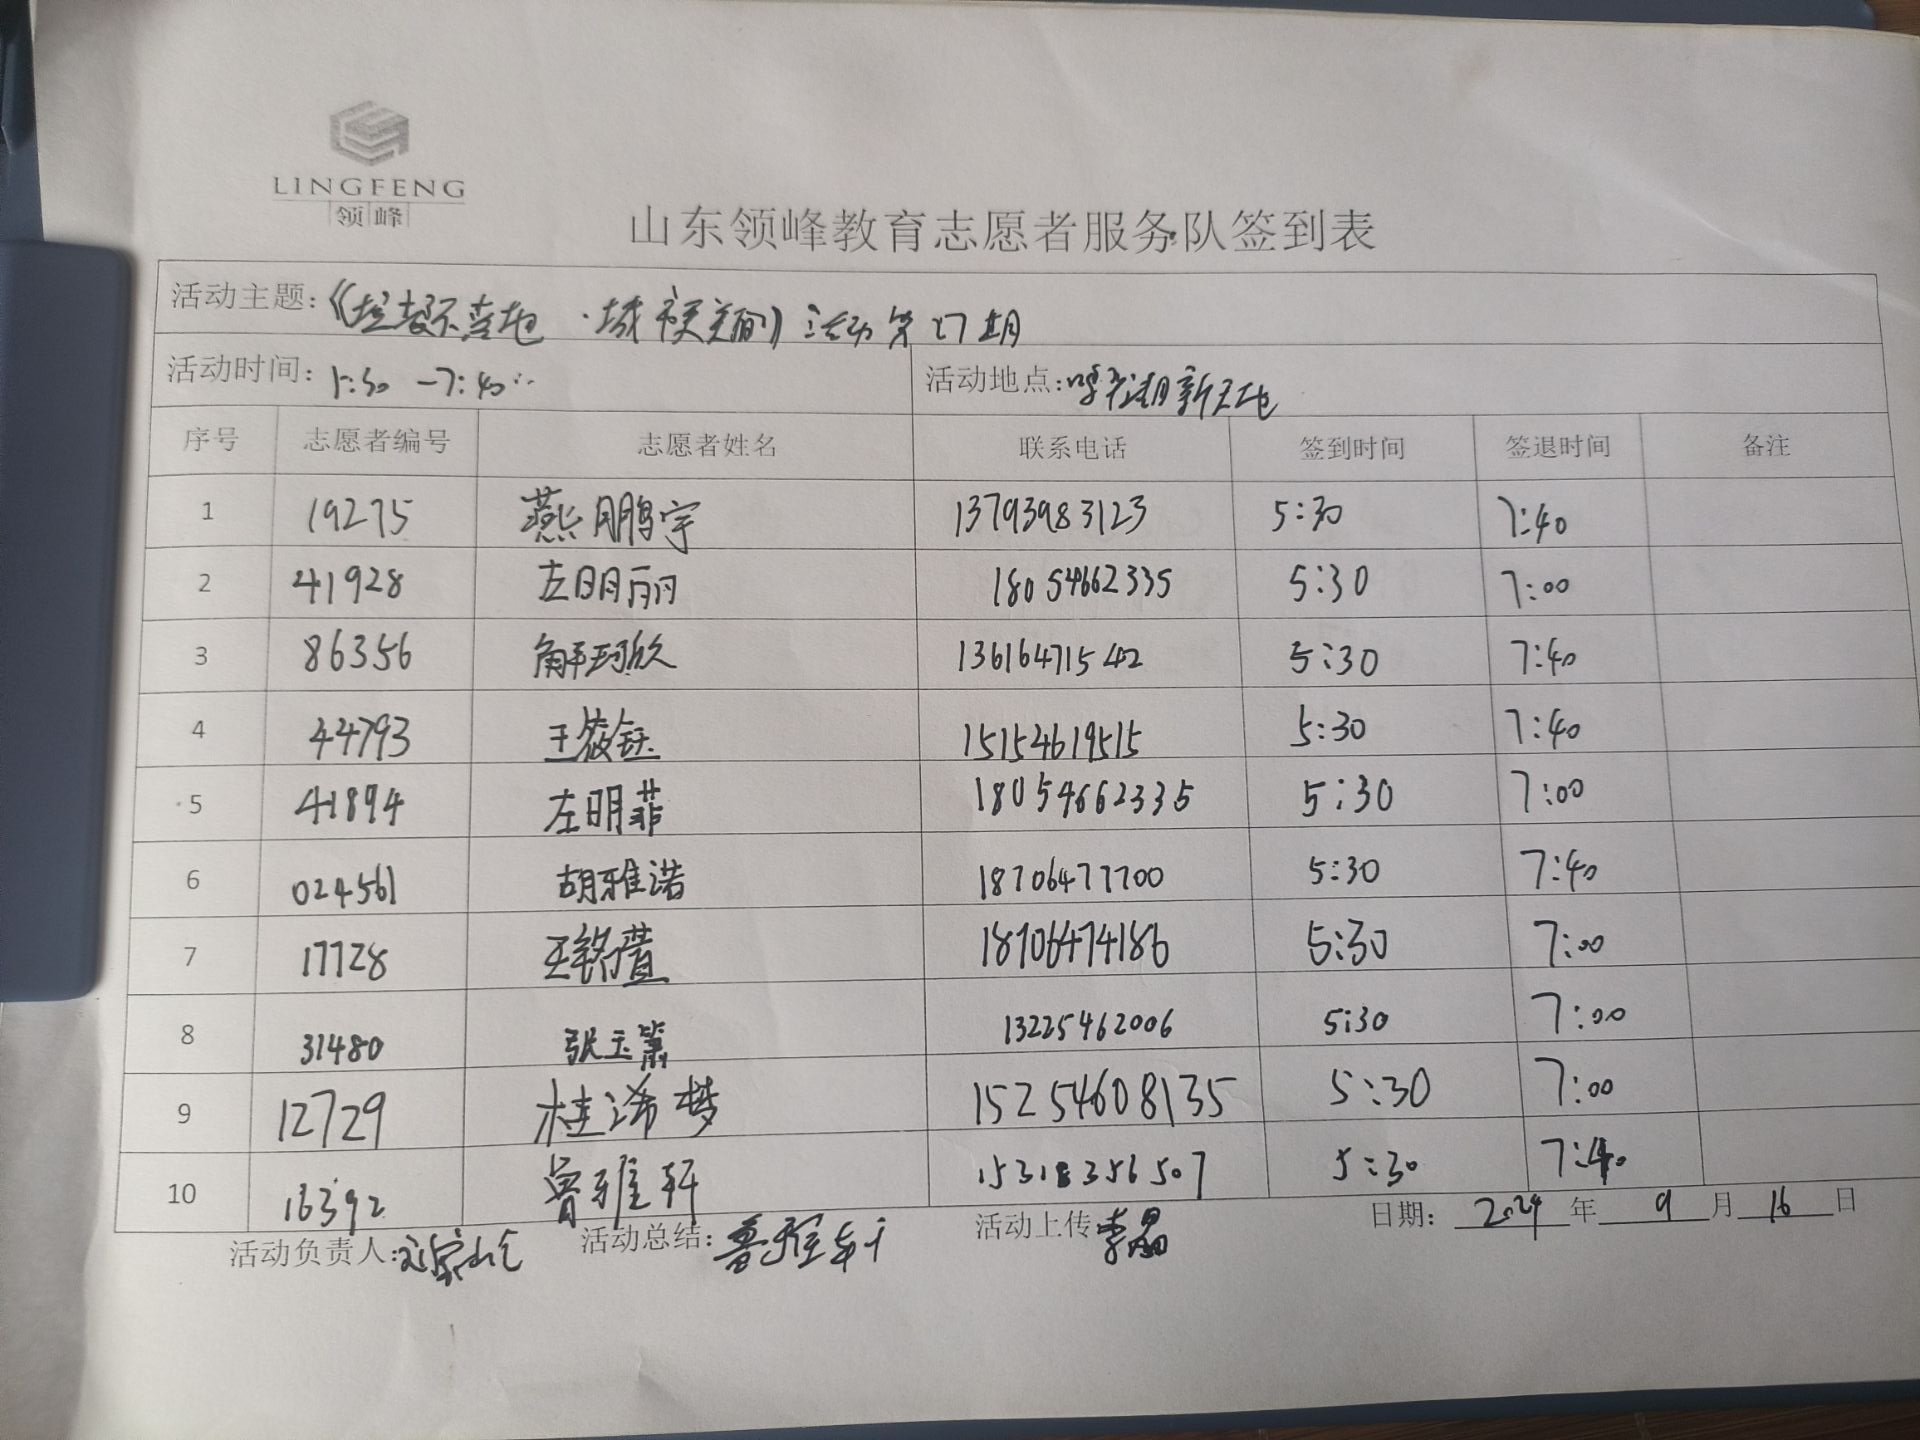 LINGFENG
领峰
山东领峰教育志愿者服务队签到表
活动主题:《垃圾不落地·城市更美丽》活动第17期
活动时间: 5:30 -7:40 活动地点:新天地
序号 志愿者编号 志愿者姓名 联系电话 签到时间 签退时间 备注
1 19275 燕鹏宇 13793983123 5:30 7:40
2 41928 左明丽 18054662335 5:30 7:00
3 86356 解珂欣 13616471542 5:30 7:40
4 44793 王筱钰 15154619515 5:30 7:40
5 41894 左明菲 18054662335 5:30 7:00
6 024561 胡雅诺 18706477700 5:30 7:40
7 17728 王铭萱 18706474186 5:30 7:00
8 31480 张玉箫 13225462006 5:30 7:00
9 12729 桂浠梦 15254608135 5:30 7:00
10 16392 鲁雅轩 15318356507 5:30 7:40
活动负责人: 活动总结:鲁雅轩 活动上传 李晶 日期: 2024 年 9 月 16 日